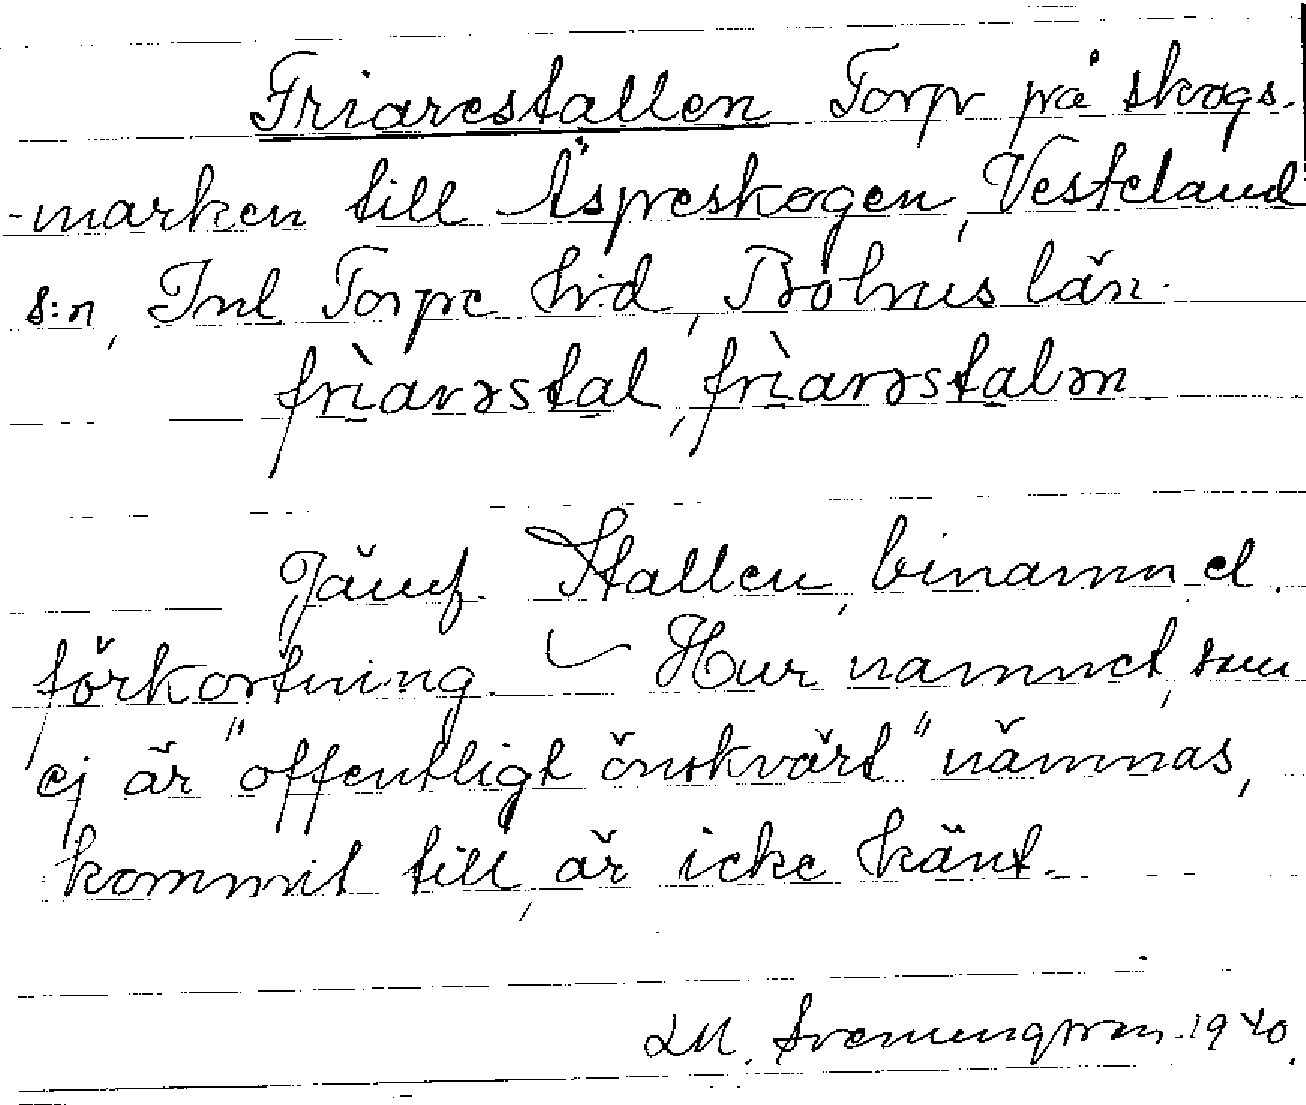 Friarestallen Torp på skogs-
-marken till Äspreskogen, Vesteland
s:n, Inl Torpe hd, Bohus län.
frìarəstal, frìarəstalən
Jämf. Stallen, binamn el.
förkortning. – Hur namnet, som
ej är "offentligt önskvärt" nämnas,
kommit till, är icke känt.
LM. Svenungsson 1940.